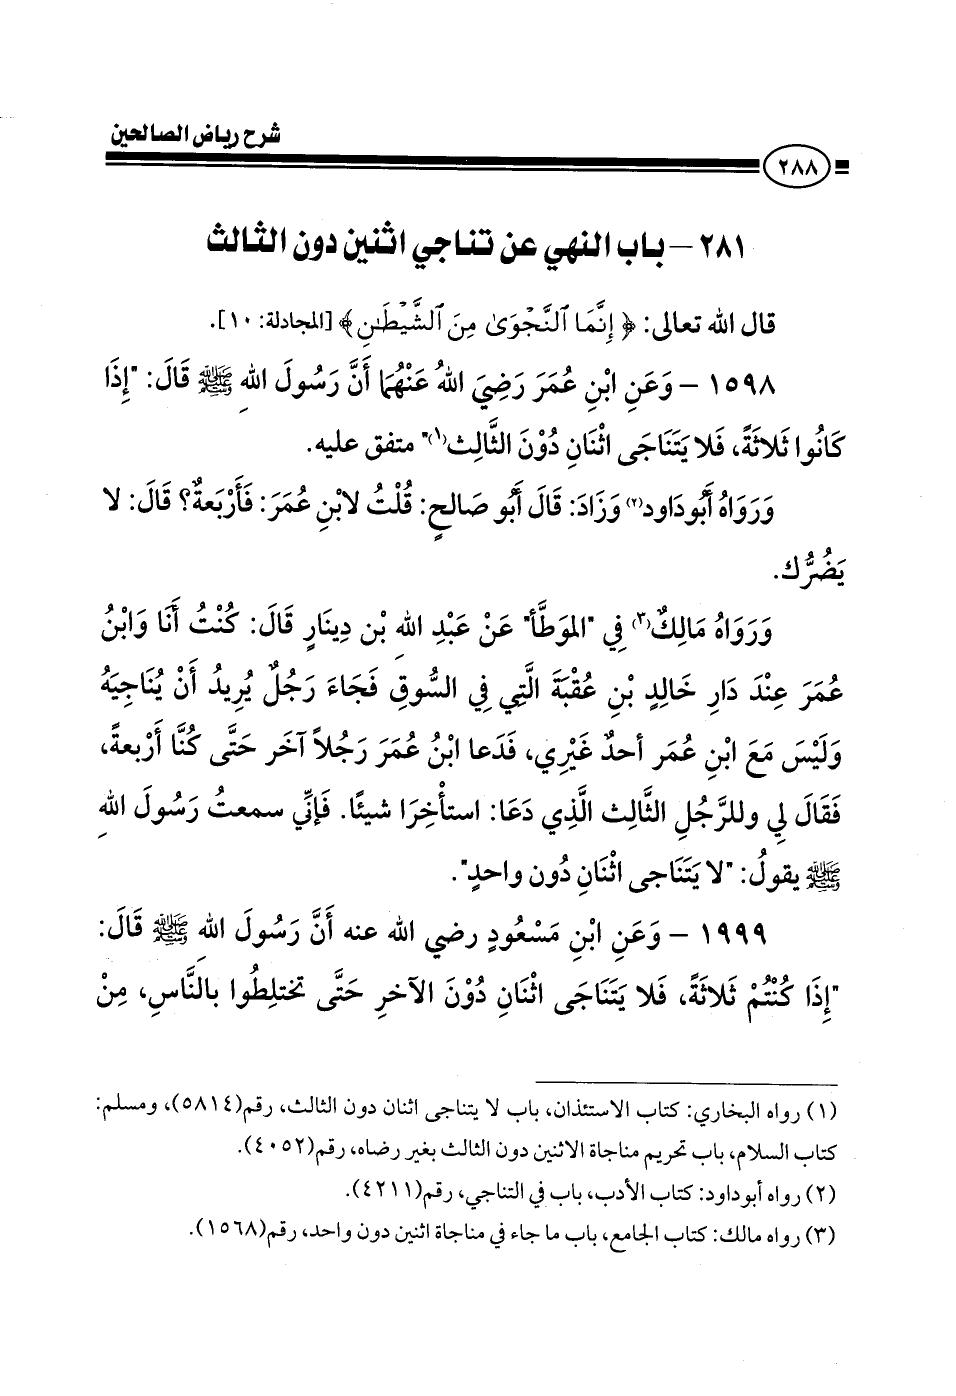 شرح رياض الصالحين
٢٨٨
٢٨١ – باب النهي عن تناجي اثنين دون الثالث
قال الله تعالى: ﴿ إِنَّمَا ٱلنَّجْوَىٰ مِنَ ٱلشَّيْطَـٰنِ ﴾ [المجادلة: ١٠].
١٥٩٨ – وَعَنِ ابْنِ عُمَرَ رَضِيَ اللهُ عَنْهُمَا أَنَّ رَسُولَ اللهِ ﷺ قَالَ: "إِذَا
كَانُوا ثَلاثَةً، فَلا يَتَنَاجَى اثْنَانِ دُوْنَ الثَّالِث(١)" متفق عليه.
وَرَوَاهُ أَبُوداود(٢) وَزَادَ: قَالَ أَبُو صَالحٍ: قُلْتُ لابْنِ عُمَرَ: فَأَرْبَعةٌ؟ قَالَ: لا
يَضُرُّك.
وَرَوَاهُ مَالِكٌ(٣) فِي "الموَطَّأ" عَنْ عَبْدِ اللهِ بْن دِينَارٍ قَالَ: كُنْتُ أَنَا وَابْنُ
عُمَرَ عِنْدَ دَارِ خَالِدِ بْنِ عُقْبَةَ الَّتِي فِي السُّوقِ فَجَاءَ رَجُلٌ يُرِيدُ أَنْ يُنَاجِيَهُ
وَلَيْسَ مَعَ ابْنِ عُمَر أحدٌ غَيْرِي، فَدَعا ابْنُ عُمَرَ رَجُلاً آخَر حَتَّى كُنَّا أَرْبعةً،
فَقَالَ لِي وللرَّجُلِ الثَّالِث الَّذِي دَعَا: استأْخِرَا شيئًا. فَإنِّي سمعتُ رَسُولَ اللهِ
ﷺ يقولُ: "لا يَتَنَاجى اثْنَانِ دُون واحدٍ".
١٩٩٩ – وَعَنِ ابْنِ مَسْعُودٍ رضي الله عنه أَنَّ رَسُولَ اللهِ ﷺ قَالَ:
"إِذَا كُنْتُمْ ثَلاثَةً، فَلا يَتَنَاجَى اثْنَانِ دُوْنَ الآخرِ حَتَّى تختلِطُوا بالنَّاسِ، مِنْ
(١) رواه البخاري: كتاب الاستئذان، باب لا يتناجى اثنان دون الثالث، رقم(٥٨١٤)، ومسلم:
كتاب السلام، باب تحريم مناجاة الاثنين دون الثالث بغير رضاه، رقم(٤٠٥٢).
(٢) رواه أبوداود: كتاب الأدب، باب في التناجي، رقم(٤٢١١).
(٣) رواه مالك: كتاب الجامع، باب ما جاء في مناجاة اثنين دون واحد، رقم(١٥٦٨).